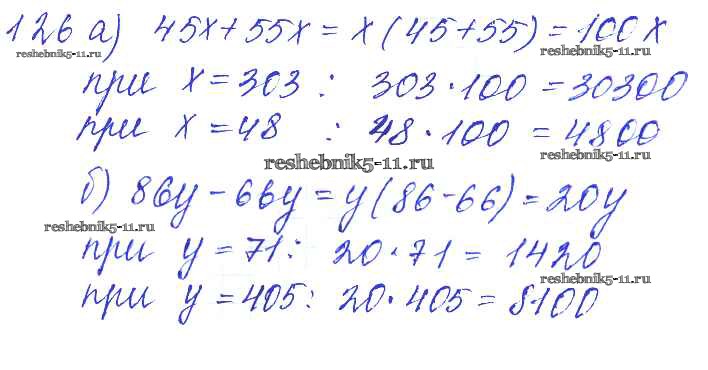 126 а) 45x + 55x = x (45+55) = 100x
reshebnik5-11.ru reshebnik5-11.ru
при x = 303 : 303 · 100 = 30300
при x = 48 : 48 · 100 = 4800
reshebnik5-11.ru reshebnik5-11.ru
б) 86y - 66y = y (86 - 66) = 20y
reshebnik5-11.ru
при y = 71 : 20 · 71 = 1420
reshebnik5-11.ru
при y = 405 : 20 · 405 = 8100